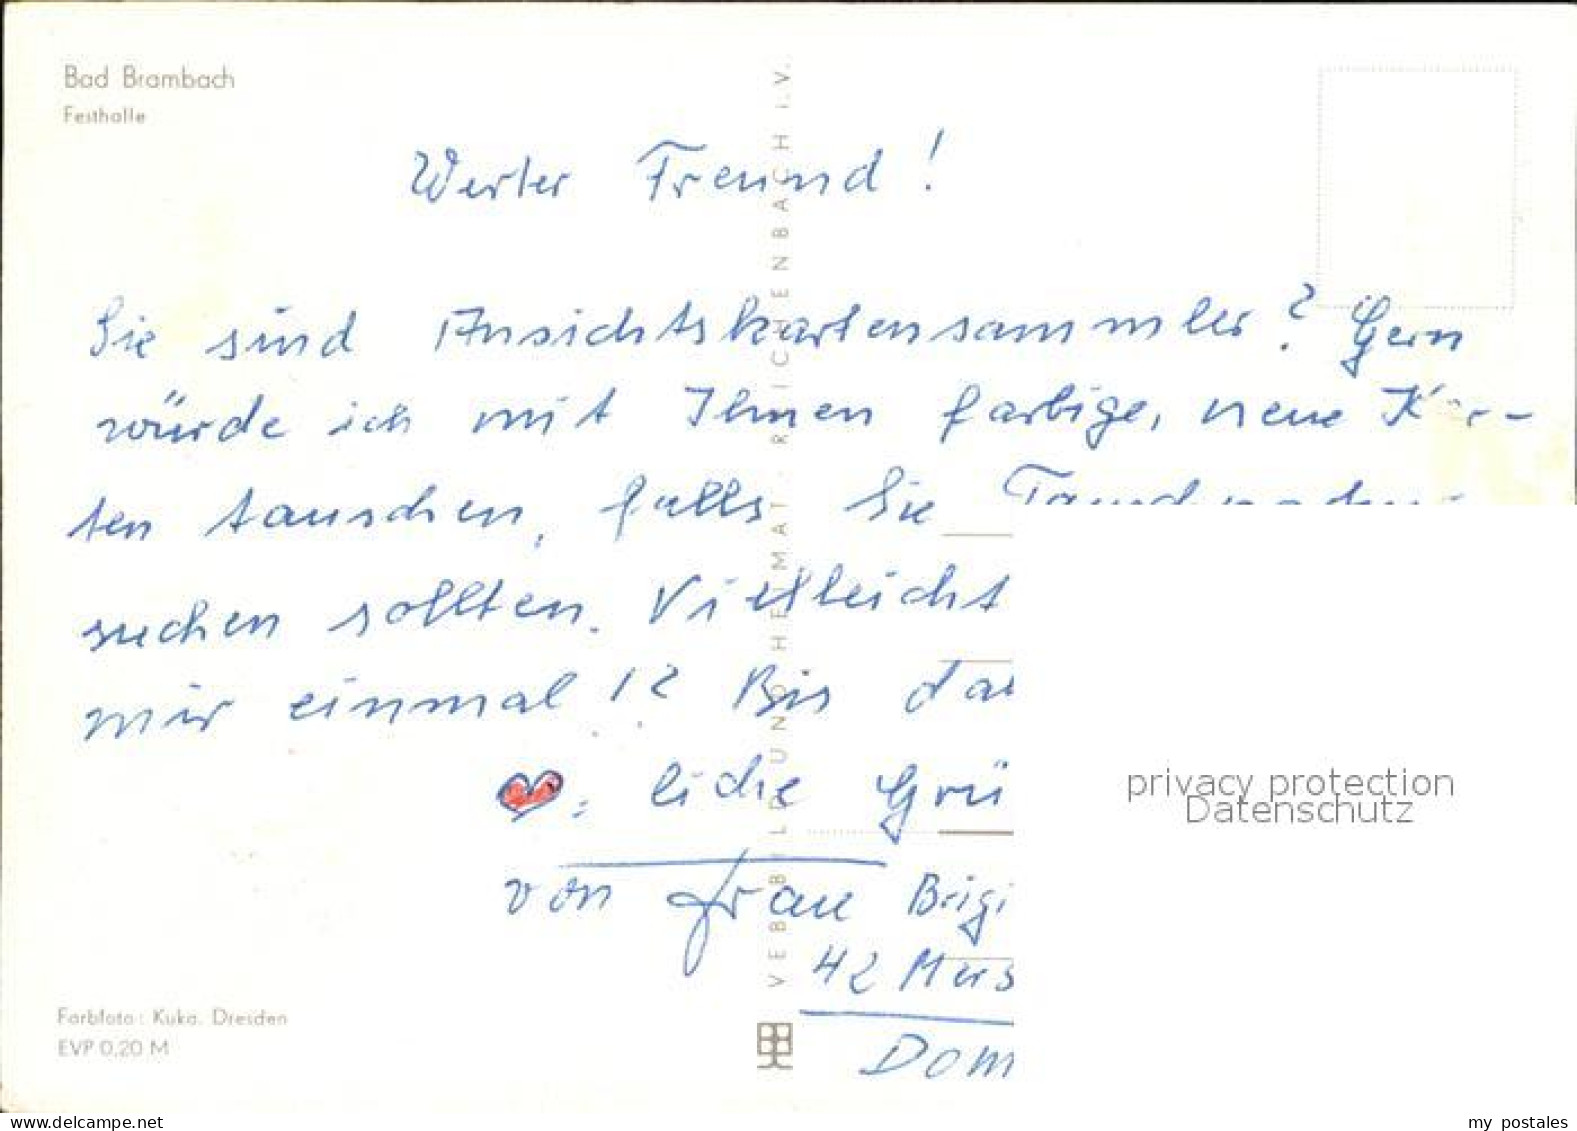 Bad Brambach
Festhalle
Werter Freund!
Sie sind Ansichtskartensammler? Gern
würde ich mit Ihnen farbige, neue Kar-
ten tauschen, falls Sie
suchen sollten. Vielleicht
mir einmal!? Bis
liche Grü
von Frau Brigi
42 Mers
Dom
VEB BILD UND HEIMAT · REICHENBACH i.V.
privacy protection
Datenschutz
Farbfoto: Kuka, Dresden
EVP 0,20 M
www.delcampe.net
my postales